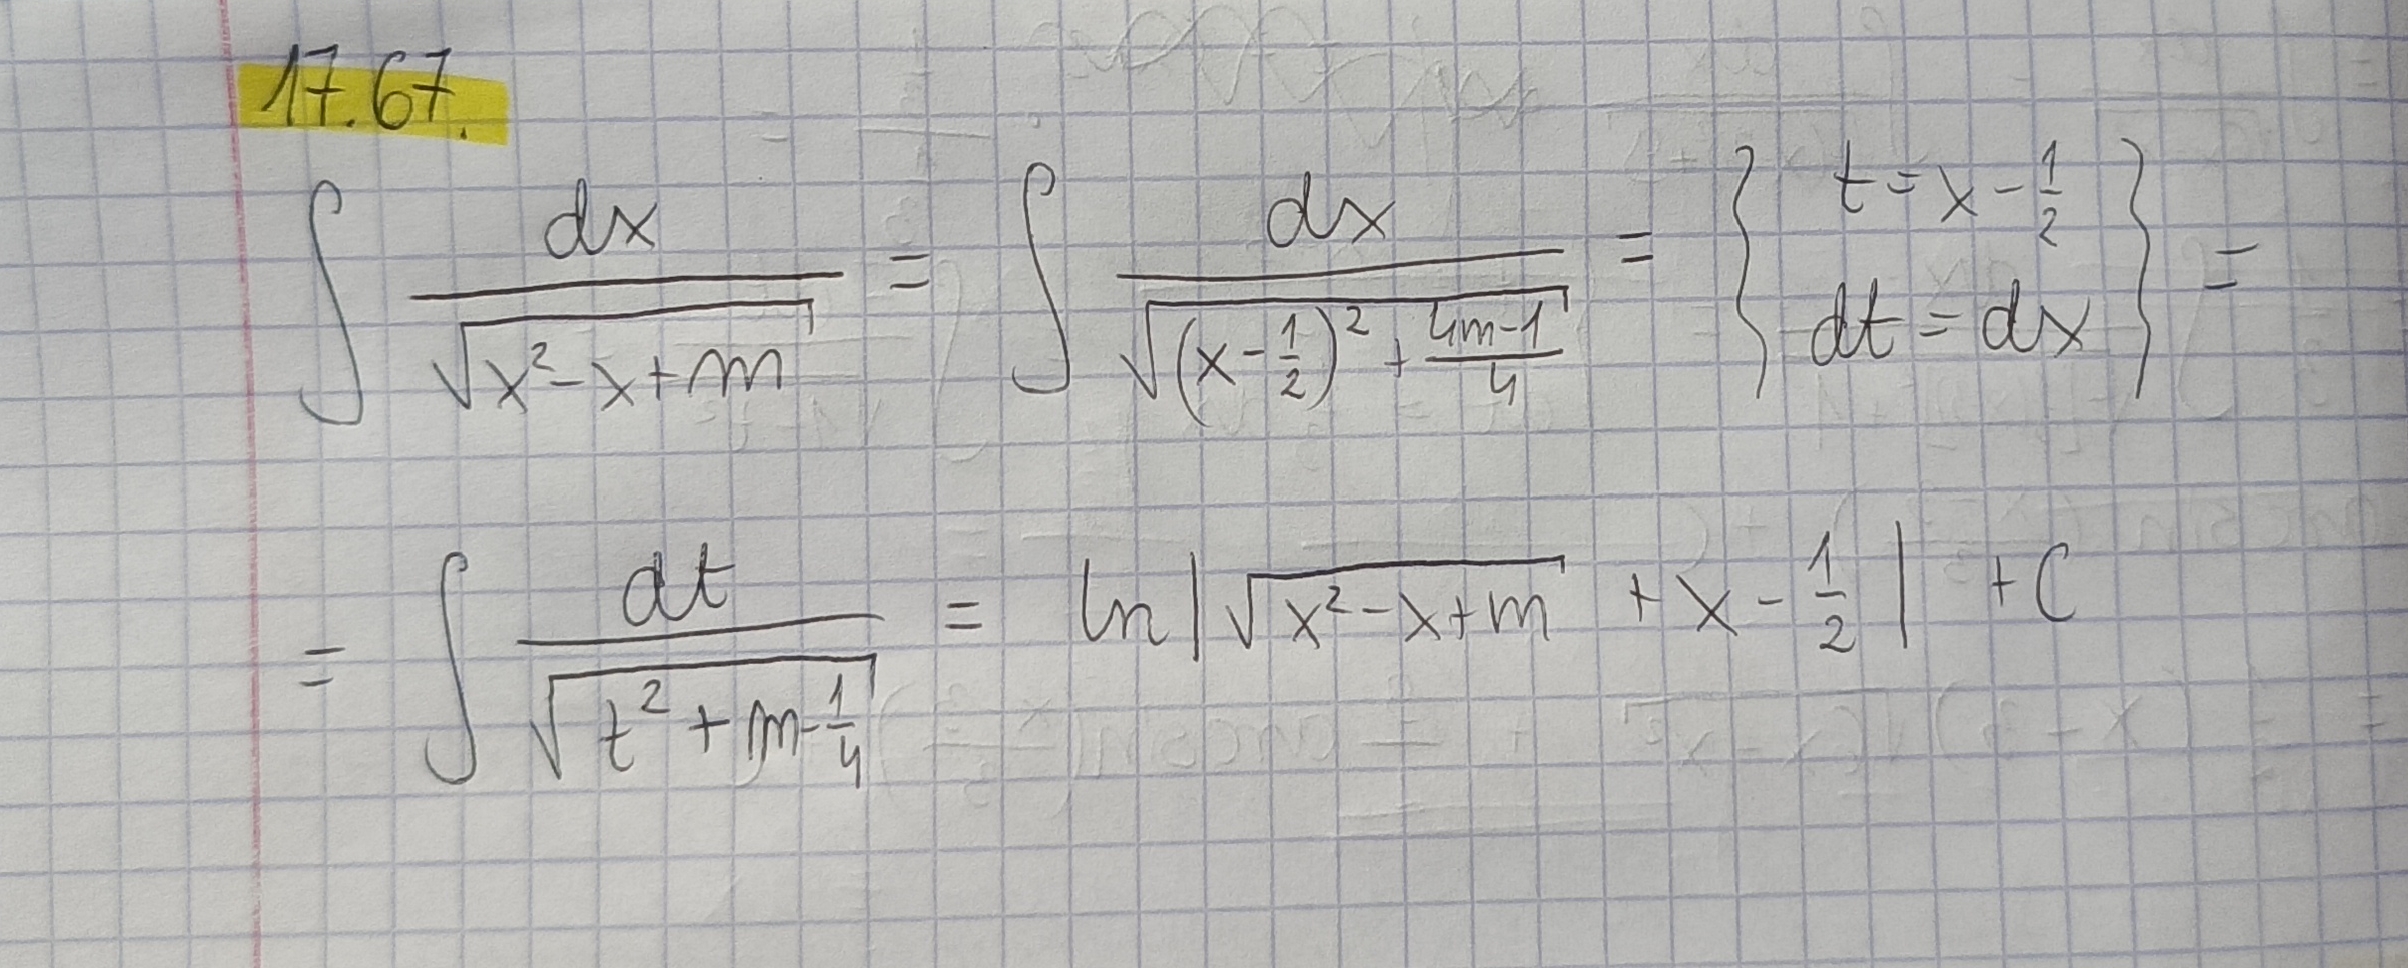 17.67.
∫ dx/√(x²-x+m) = ∫ dx/√((x-1/2)²+(4m-1)/4) = { t=x-1/2 dt=dx } =
= ∫ dt/√(t²+m-1/4) = ln|√(x²-x+m) +x-1/2| +C